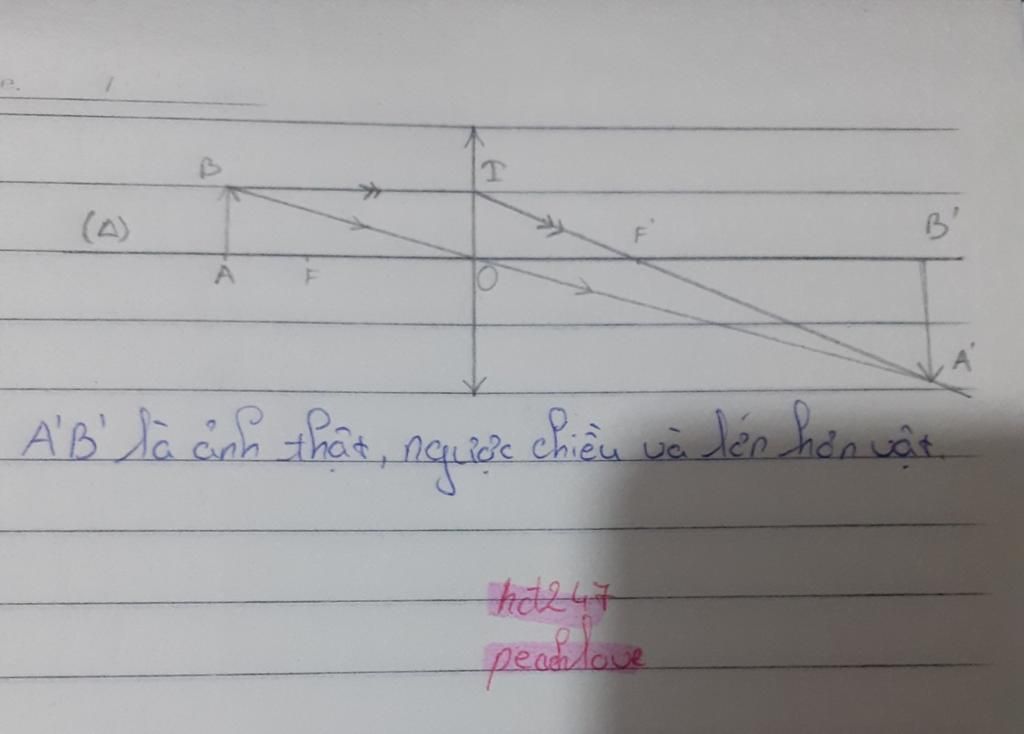 B
I
(Δ)
F'
B'
A
F
O
A'
A'B' là ảnh thật, ngược chiều và lớn hơn vật.
hd247
peachlove